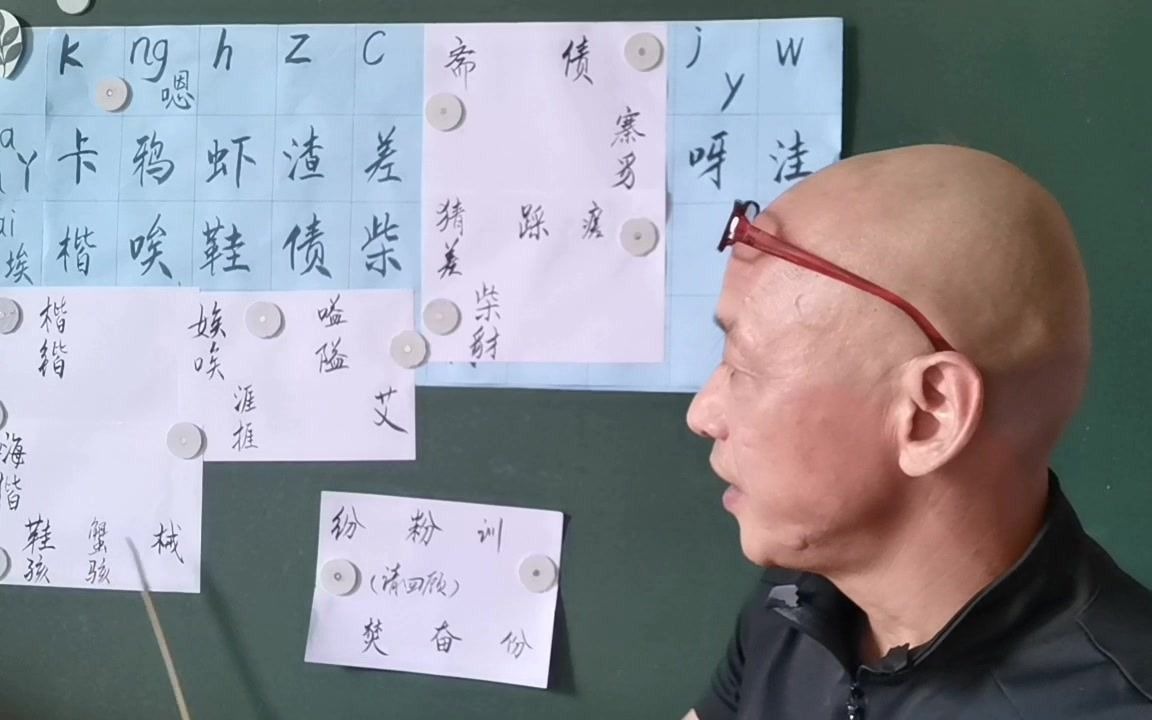 k ng h z c
嗯
a 丫 卡 鸦 虾 渣 差
ai 埃 楷 唉 鞋 债 柴
斋 债
寨
猜 踩 瘥
差
柴
豺
j w
y
呀 洼
楷
锴
挨 嗌
唉 隘
涯
捱 艾
嗨
偕
鞋 蟹 械
孩 骇
纷 粉 训
(请回顾)
焚 奋 份